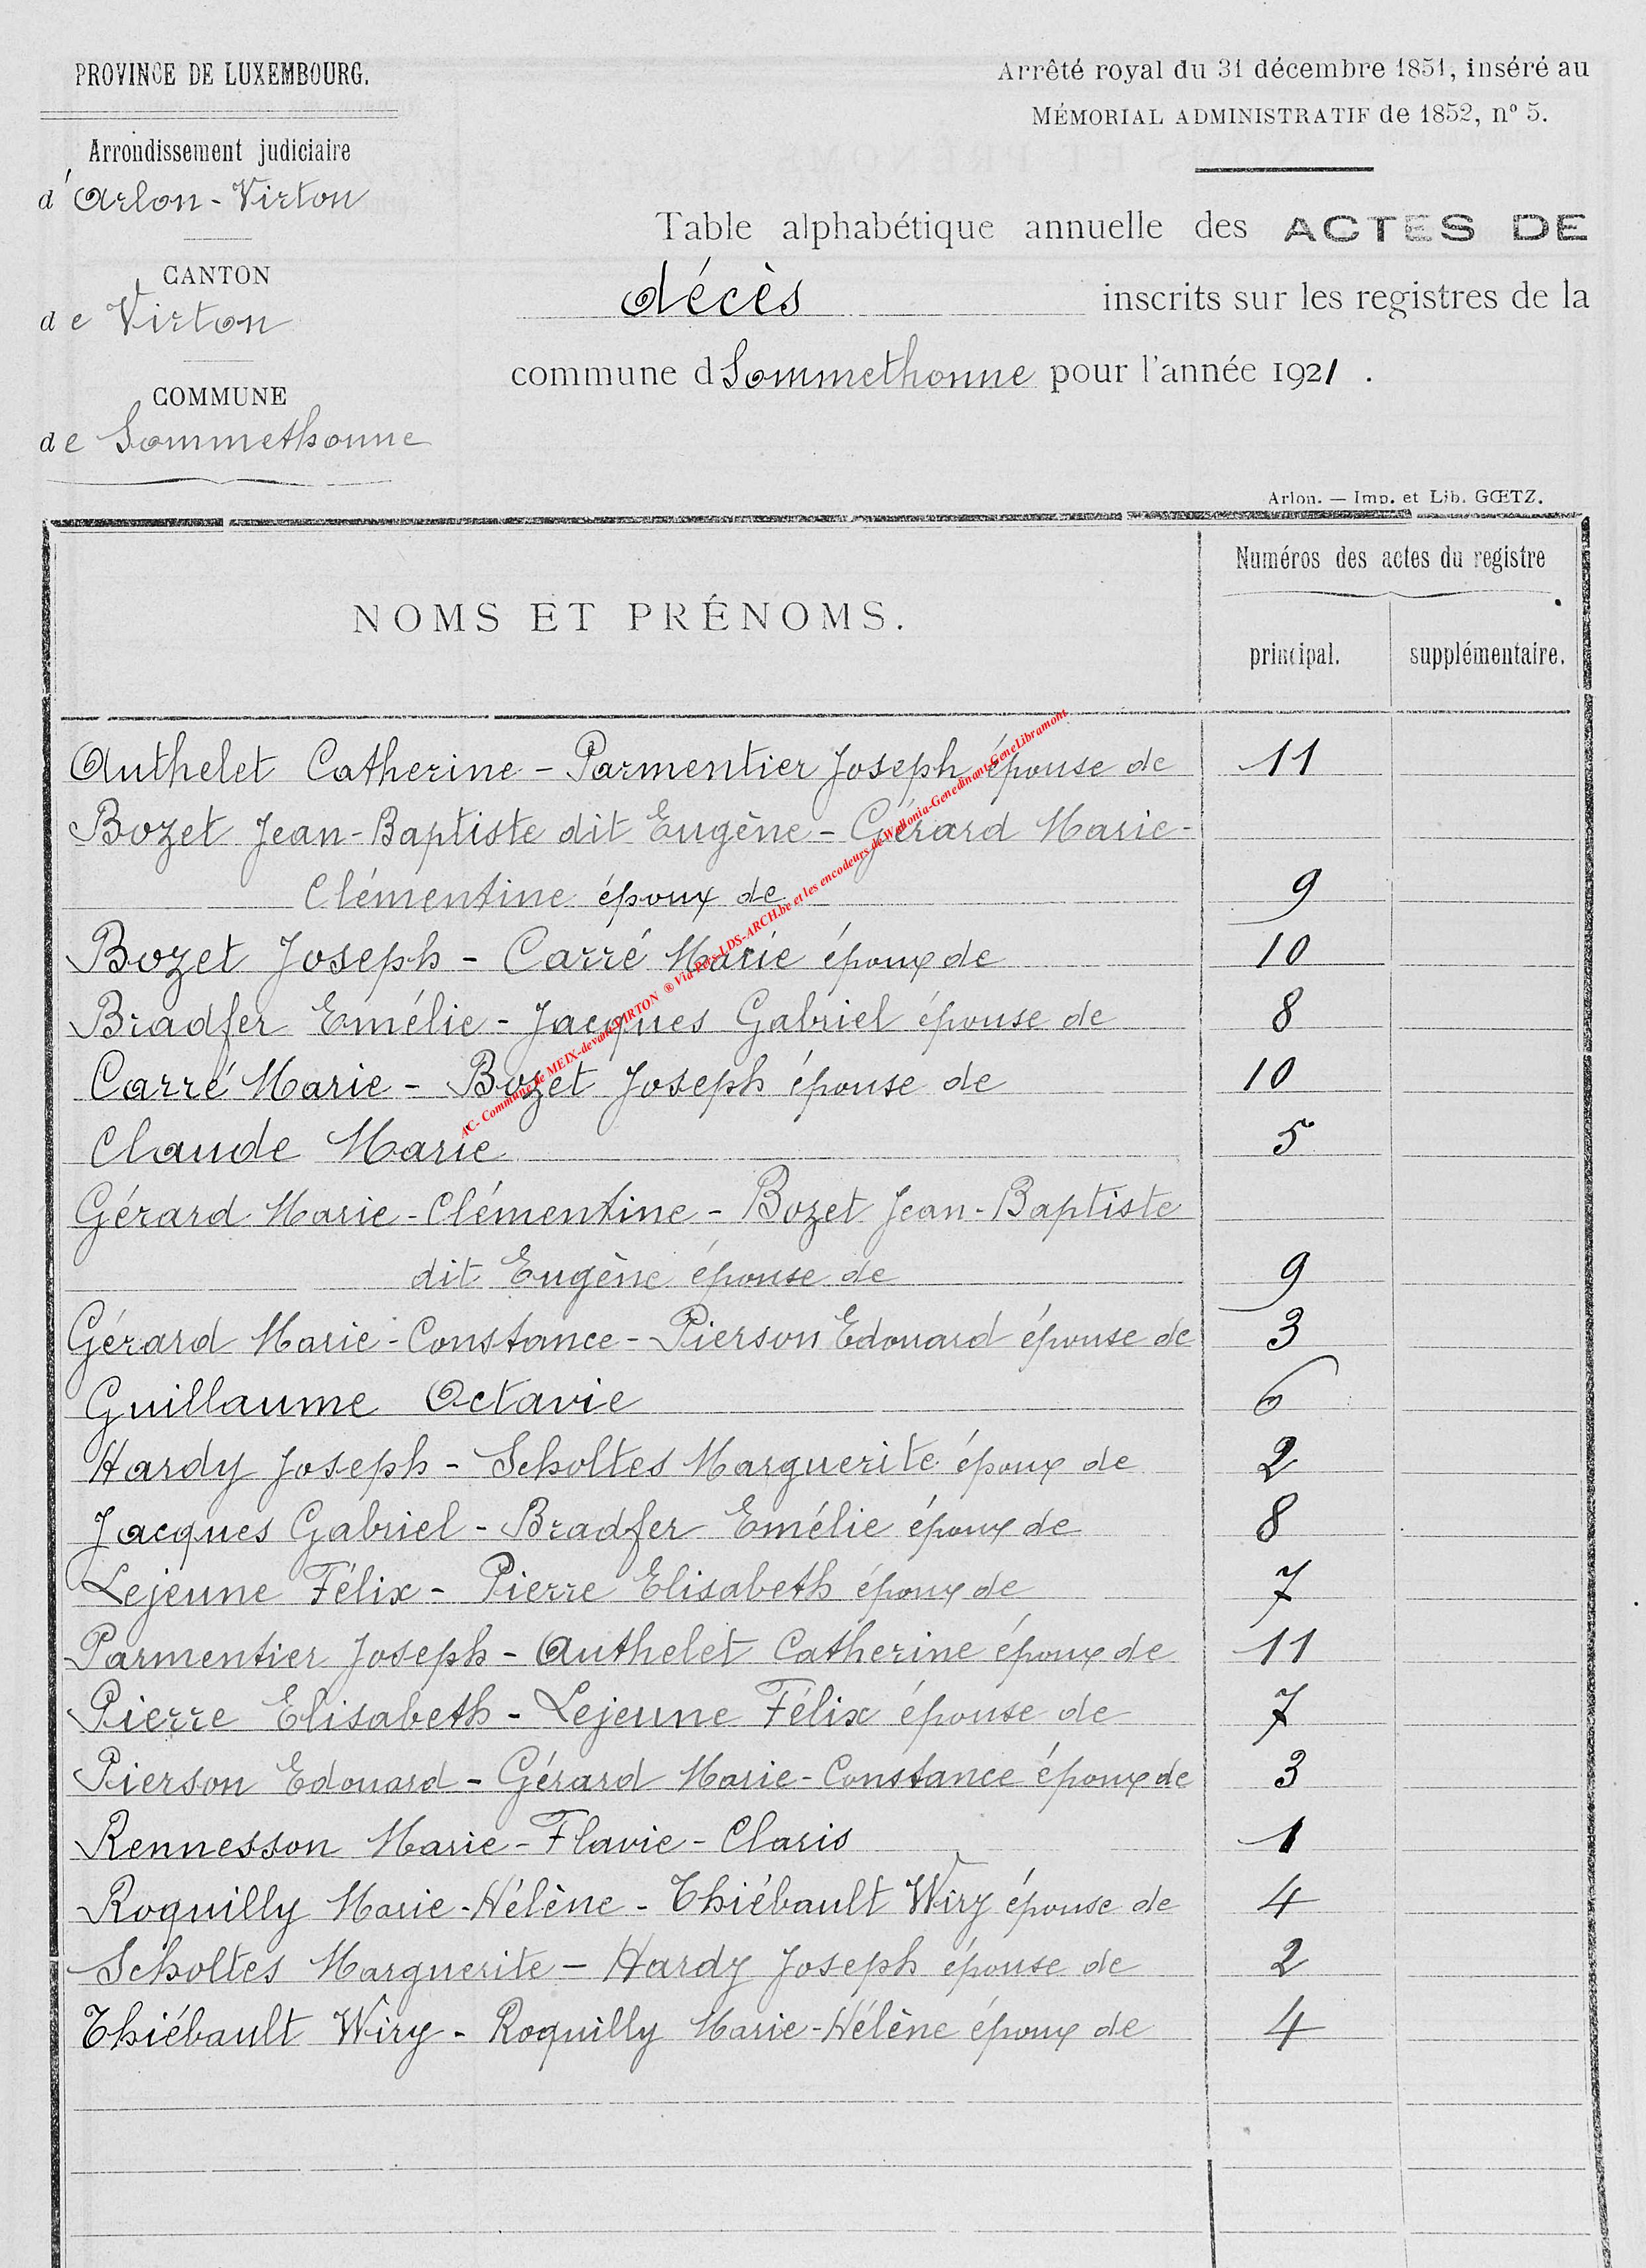 PROVINCE DE LUXEMBOURG.
Arrondissement judiciaire
d'Arlon - Virton
CANTON
de Virton
COMMUNE
de Sommethonne
Arrêté royal du 31 décembre 1851, inséré au
MÉMORIAL ADMINISTRATIF de 1852, n° 5.
Table alphabétique annuelle des ACTES DE
décès inscrits sur les registres de la
commune d Sommethonne pour l'année 1921.
Arlon. — Imp. et Lib. GŒTZ.
NOMS ET PRÉNOMS.
Numéros des actes du registre
principal. supplémentaire.
Authelet Catherine - Parmentier Joseph épouse de 11
Bozet Jean-Baptiste dit Eugène - Gérard Marie-
Clémentine époux de 9
Bozet Joseph - Carré Marie époux de 10
Bradfer Emélie - Jacques Gabriel épouse de 8
Carré Marie - Bozet Joseph épouse de 10
Claude Marie 5
Gérard Marie-Clémentine - Bozet Jean-Baptiste
dit Eugène épouse de 9
Gérard Marie-Constance - Pierson Edouard épouse de 3
Guillaume Octavie 6
Hardy Joseph - Scholtes Marguerite époux de 2
Jacques Gabriel - Bradfer Emélie époux de 8
Lejeune Félix - Pierre Elisabeth époux de 7
Parmentier Joseph - Authelet Catherine époux de 11
Pierre Elisabeth - Lejeune Félix épouse de 7
Pierson Edouard - Gérard Marie-Constance époux de 3
Rennesson Marie-Flavie-Claris 1
Roquilly Marie-Hélène - Thiébault Wiry épouse de 4
Scholtes Marguerite - Hardy Joseph épouse de 2
Thiébault Wiry - Roquilly Marie-Hélène époux de 4
AC- Commune de MEIX-devant-VIRTON ® Via LDS-ARCH.be et les encodeurs de Wallonia-Genedinant-GeneLibramont